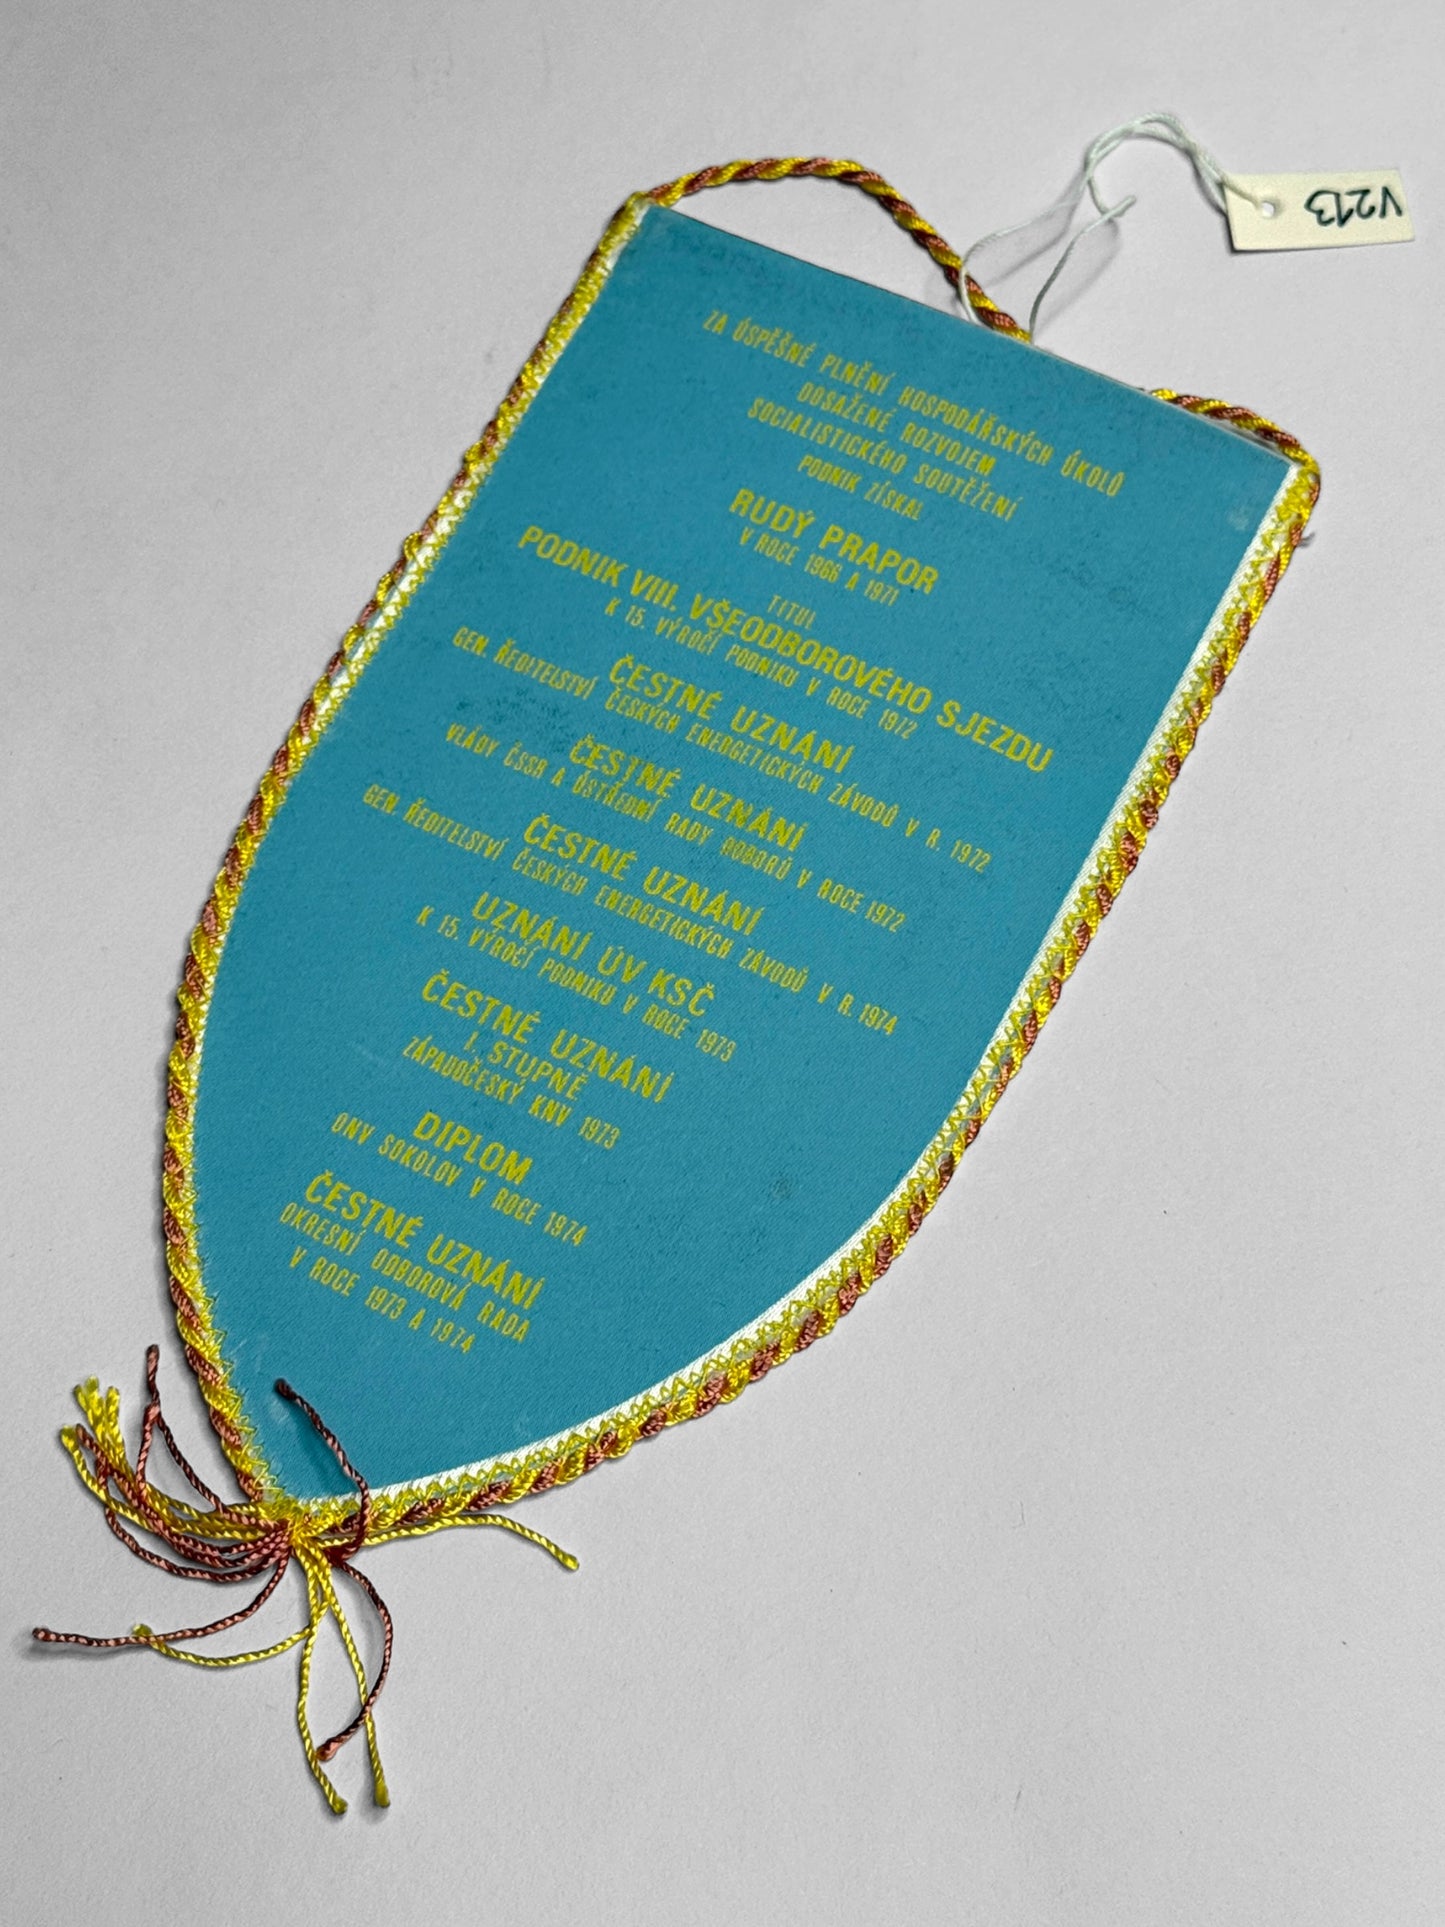 ZA ÚSPĚŠNÉ PLNĚNÍ HOSPODÁŘSKÝCH ÚKOLŮ
DOSAŽENÉ ROZVOJEM
SOCIALISTICKÉHO SOUTĚŽENÍ
PODNIK ZÍSKAL
RUDÝ PRAPOR
V ROCE 1966 A 1971
TITUL
PODNIK VIII. VŠEODBOROVÉHO SJEZDU
K 15. VÝROČÍ PODNIKU V ROCE 1972
ČESTNÉ UZNÁNÍ
GEN. ŘEDITELSTVÍ ČESKÝCH ENERGETICKÝCH ZÁVODŮ V R. 1972
ČESTNÉ UZNÁNÍ
VLÁDY ČSSR A ÚSTŘEDNÍ RADY ODBORŮ V ROCE 1972
ČESTNÉ UZNÁNÍ
GEN. ŘEDITELSTVÍ ČESKÝCH ENERGETICKÝCH ZÁVODŮ V R. 1974
UZNÁNÍ ÚV KSČ
K 15. VÝROČÍ PODNIKU V ROCE 1973
ČESTNÉ UZNÁNÍ
I. STUPNĚ
ZÁPADOČESKÝ KNV 1973
DIPLOM
ONV SOKOLOV V ROCE 1974
ČESTNÉ UZNÁNÍ
OKRESNÍ ODBOROVÁ RADA
V ROCE 1973 A 1974
V213